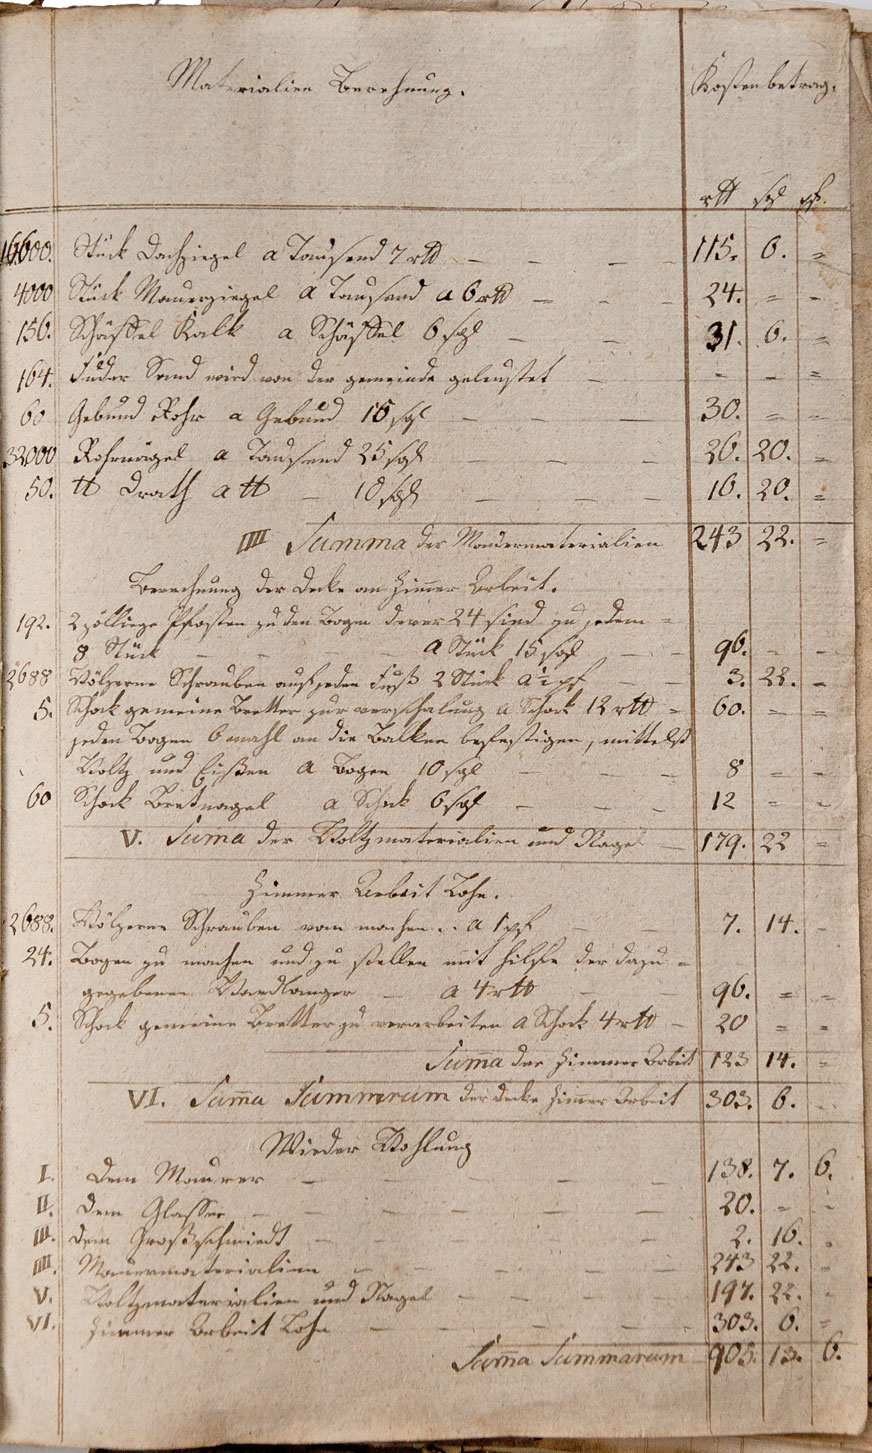 Materialien Berechnung. Kostenbetrag.
rtl sgl pf.
16600. Stück Dachziegel a Tausend 7 rtl — — — 115. 6. =
4000 Stück Mauerziegel a Tausend a 6 rtl — — — 24. = =
156. Schäffel Kalk a Schäffel 6 sgl — — 31. 6. =
164. Fuder Sand wird von der gemeinde geleustet — - - =
60 Gebund Rohr a Gebund 15 sgl — — — 30. = =
32000 Rohrnägel a Tausend 25 sgl — — — 26. 20. =
50. tt Drath a tt — 10 sgl — — — 16. 20. =
IIII Summa der Mauermaterialien 243 22. =
Berechnung der Decke an Zimer Arbeit.
192. 2 zöllige Pfosten zu den Bogen derer 24 sind zu jedem =
8 Stück — — — a Stück 15 sgl — — 96. - -
2688 Hölzerne Schrauben auf jeden Fuß 2 Stück a ½ pf — — 3. 22. -
5. Schock gemeine Bretter zur verschalung a Schock 12 rtl = 60. = =
jeden Bogen 6 mahl an die Balken befestigen, mittelst
Holtz und Eißen a Bogen 10 sgl — — — 8 = -
60 Schock Bretnagel a Schock 6 sgl — — — 12 = =
V. Suma der Holtzmaterialien und Nagel — 179. 22 =
Zimmer Arbeit Lohn.
2688. Hölzerne Schrauben machen a 1 pf — — 7. 14. -
24. Bogen zu machen und zu stellen mit Hilfe der dazu =
gegebenen Handlanger — a 4 rtl — — 96. = =
5. Schock gemeine Bretter zu verarbeiten a Schock 4 rtl — 20 = =
Suma der Zimmer Arbeit 123 14. =
VI. Suma Summrum der Decke Zimer Arbeit 303. 6. -
Wieder Hohlung
I. Dem Maurer — — — — 138. 7. 6.
II. Dem Glasser — — — — 20. - -
III. Dem Großschmiedt — — — — 2. 16. -
IIII. Mauermaterialien — — — — 243 22. =
V. Holtzmaterialien und Nagel — — — — 197. 22. -
VI. Zimmer Arbeit Lohn — — — — 303. 6. =
Suma Summarum — 905. 13. 6.